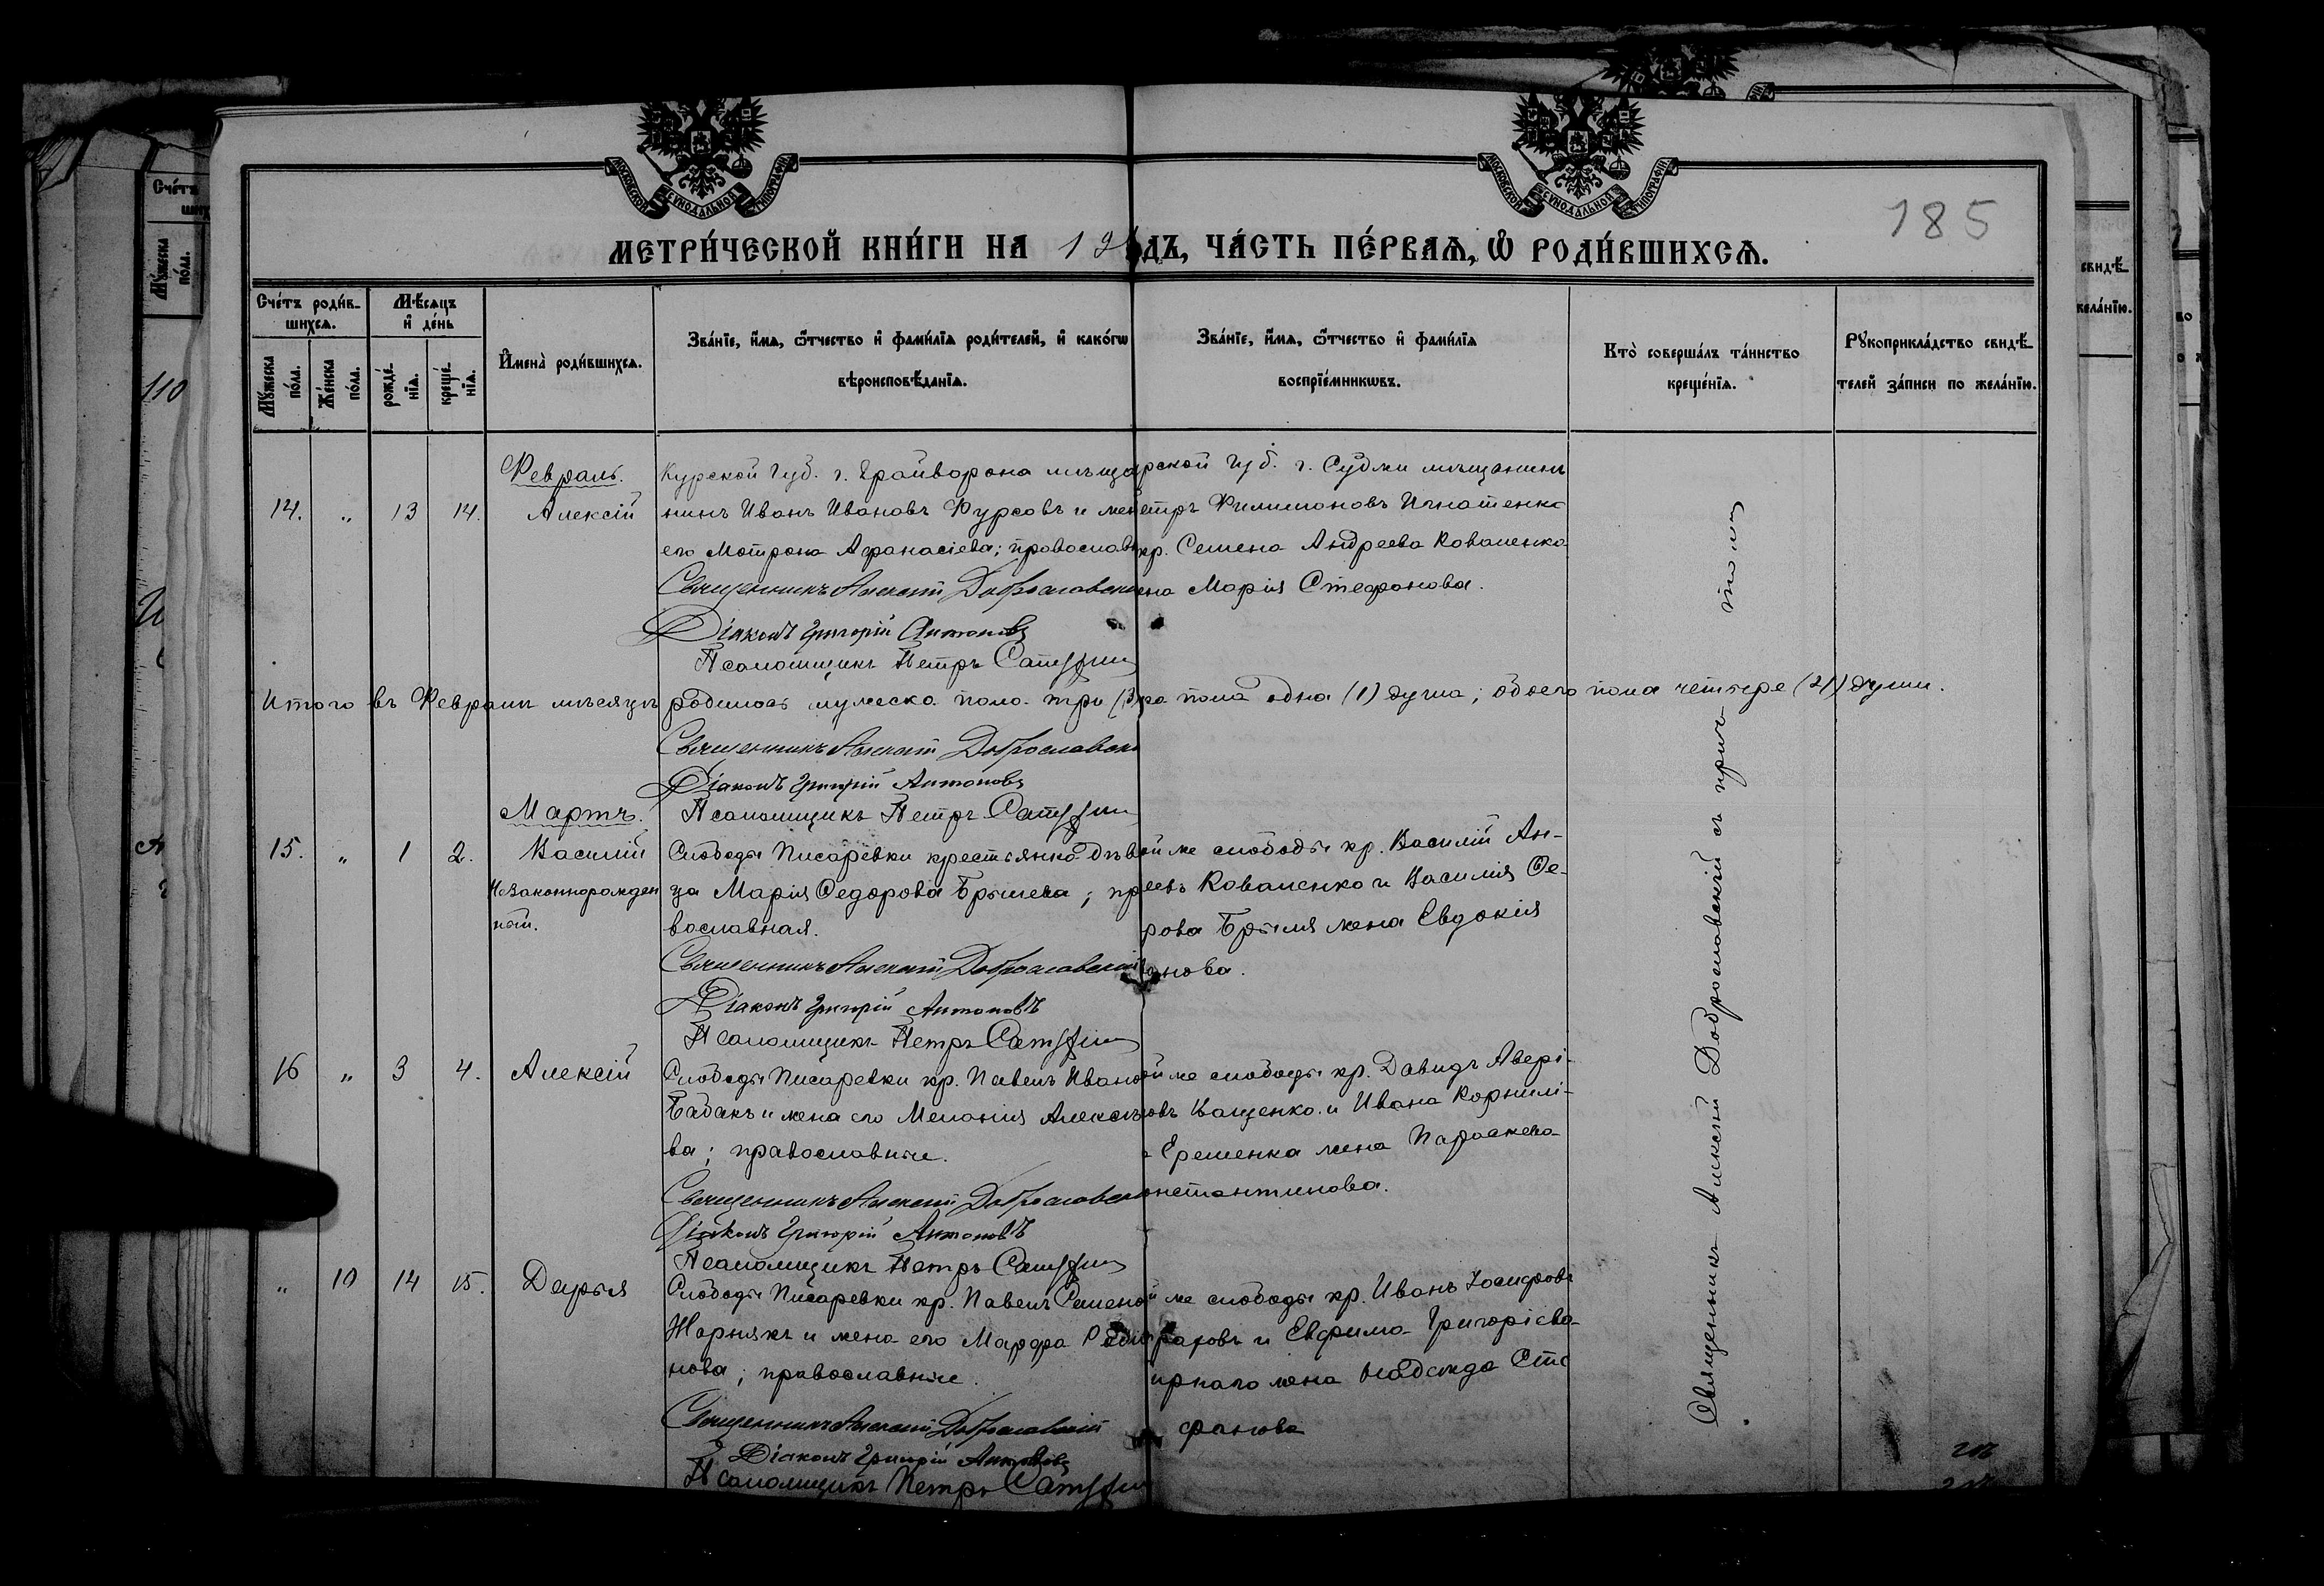 185
МЕТРИ́ЧЕСКОЙ КНИ́ГИ НА 19 ДЪ, ЧА́СТЬ ПЕ́РВАѦ, Ѡ҆ РОДИ́ВШИХСѦ.
Сче́тъ роди́в-
шихсѧ.
Мꙋ́жеска
по́ла.
Же́нска
по́ла.
Мѣ́сѧцъ
и҆ де́нь
рожде́-
нїѧ.
креще́-
нїѧ.
И҆мена̀ роди́вшихсѧ.
Зва́нїе, и҆́мѧ, ѻ҆́тчество и҆ фами́лїѧ роди́телей, и҆ како́гѡ
вѣроисповѣ́данїѧ.
Зва́нїе, и҆́мѧ, ѻ҆́тчество и҆ фами́лїѧ
воспрїе́мникѡвъ.
Кто̀ соверша́лъ та́инство
креще́нїѧ.
Рꙋкоприкла́дство свидѣ́-
телей за́писи по жела́нїю.
Февраль.
14. " 13 14. Алексій
Курской Губ. г. Грайворона мѣща
нинъ Иванъ Ивановъ Фурсовъ и же
его Мотрона Афанасіева; православн
Священникъ Алексій Доброславск
Діаконъ Григорій Антоновъ
Псаломщикъ Петръ
рской Губ. г. Суджи мѣщанинъ
етръ Филимоновъ Игнатенко
кр. Семена Андреева Коваленка
ена Марія Стефанова.
Итого въ Февралѣ мѣсяцѣ родилось мужеска пола три (3) ка пола одна (1) душа; обоего пола четыре (4) души.
Священникъ Алексій Доброславск
Діаконъ Григорій Антоновъ
Псаломщикъ Петръ
Мартъ.
15. " 1 2. Василій
Незаконнорожден
ный.
Слободы Писаревки крестьянка дѣв
ца Марія Федорова Брылева; пр
вославная.
Священникъ Алексій Доброславскій
Діаконъ Григорій Антоновъ
Псаломщикъ Петръ
ой же слободы кр. Василій Ан-
реевъ Коваленко и Василія Ѳе-
рова Брыля жена Евдокія
анова.
16 " 3 4. Алексій
Слободы Писаревки кр. Павелъ Ивано
Бабакъ и жена его Меланія Алексѣ
ва; православные.
Священникъ Алексій Доброславск
Діаконъ Григорій Антоновъ
Псаломщикъ Петръ
ой же слободы кр. Давидъ Авері-
овъ Иващенко и Ивана Корнилі-
Еременка жена Параскева
нстантинова.
" 10 14 15. Дарья
Слободы Писаревки кр. Павелъ Семено
Жорнякъ и жена его Марфа Родіо
нова; православные.
Священникъ Алексій Доброславскій
Діаконъ Григорій Антоновъ
Псаломщикъ Петръ
й же слободы кр. Иванъ Іосифовъ
и Евфима Григорієва
жена Надежда Сте
фанова
Священникъ Алексій Доброславскій съ причтомъ
Сче́тъ
Мꙋ́жеска
по́ла.
110
свидѣ́-
жела́нїю.